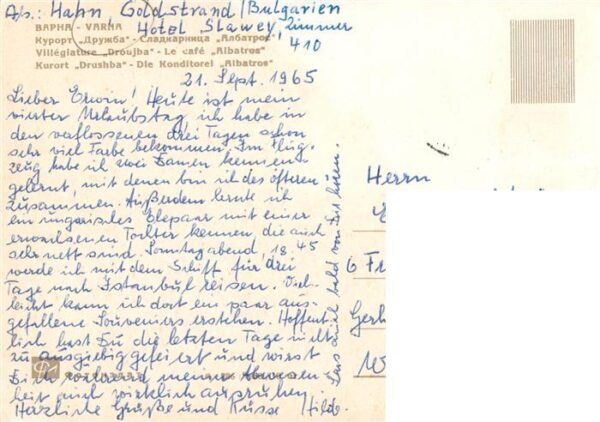 Abs.: Hahn, Goldstrand/Bulgarien
Hotel Slawey, Zimmer
410
ВАРНА - VARNA
Курорт „Дружба" - Сладкарница „Албатрос"
Villégiature „Droujba" - Le café „Albatros"
Kurort „Drushba" - Die Konditorei „Albatros"
21. Sept. 1965
Lieber Erwin! Heute ist mein
vierter Urlaubstag, ich habe in
den verflossenen drei Tagen schon
sehr viel Farbe bekommen. Im Flug-
zeug habe ich zwei Damen kennen
gelernt, mit denen bin ich des öfteren
zusammen. Außerdem lernte ich
ein ungarisches Ehepaar mit einer
erwachsenen Tochter kennen, die auch
sehr nett sind. Sonntagabend, 18.45
werde ich mit dem Schiff für drei
Tage nach Istanbul reisen. Viel-
leicht kann ich dort ein paar aus-
gefallene Souvenirs erstehen. Hoffent-
lich hast Du die letzten Tage nicht
zu ausgiebig gefeiert und wirst
Dich während meiner Abwesen-
heit auch wirklich ausruhen.
Herzliche Grüße und Küsse Hilde.
bald von Dir hören.
Herrn
E
6 Fr
Gerh